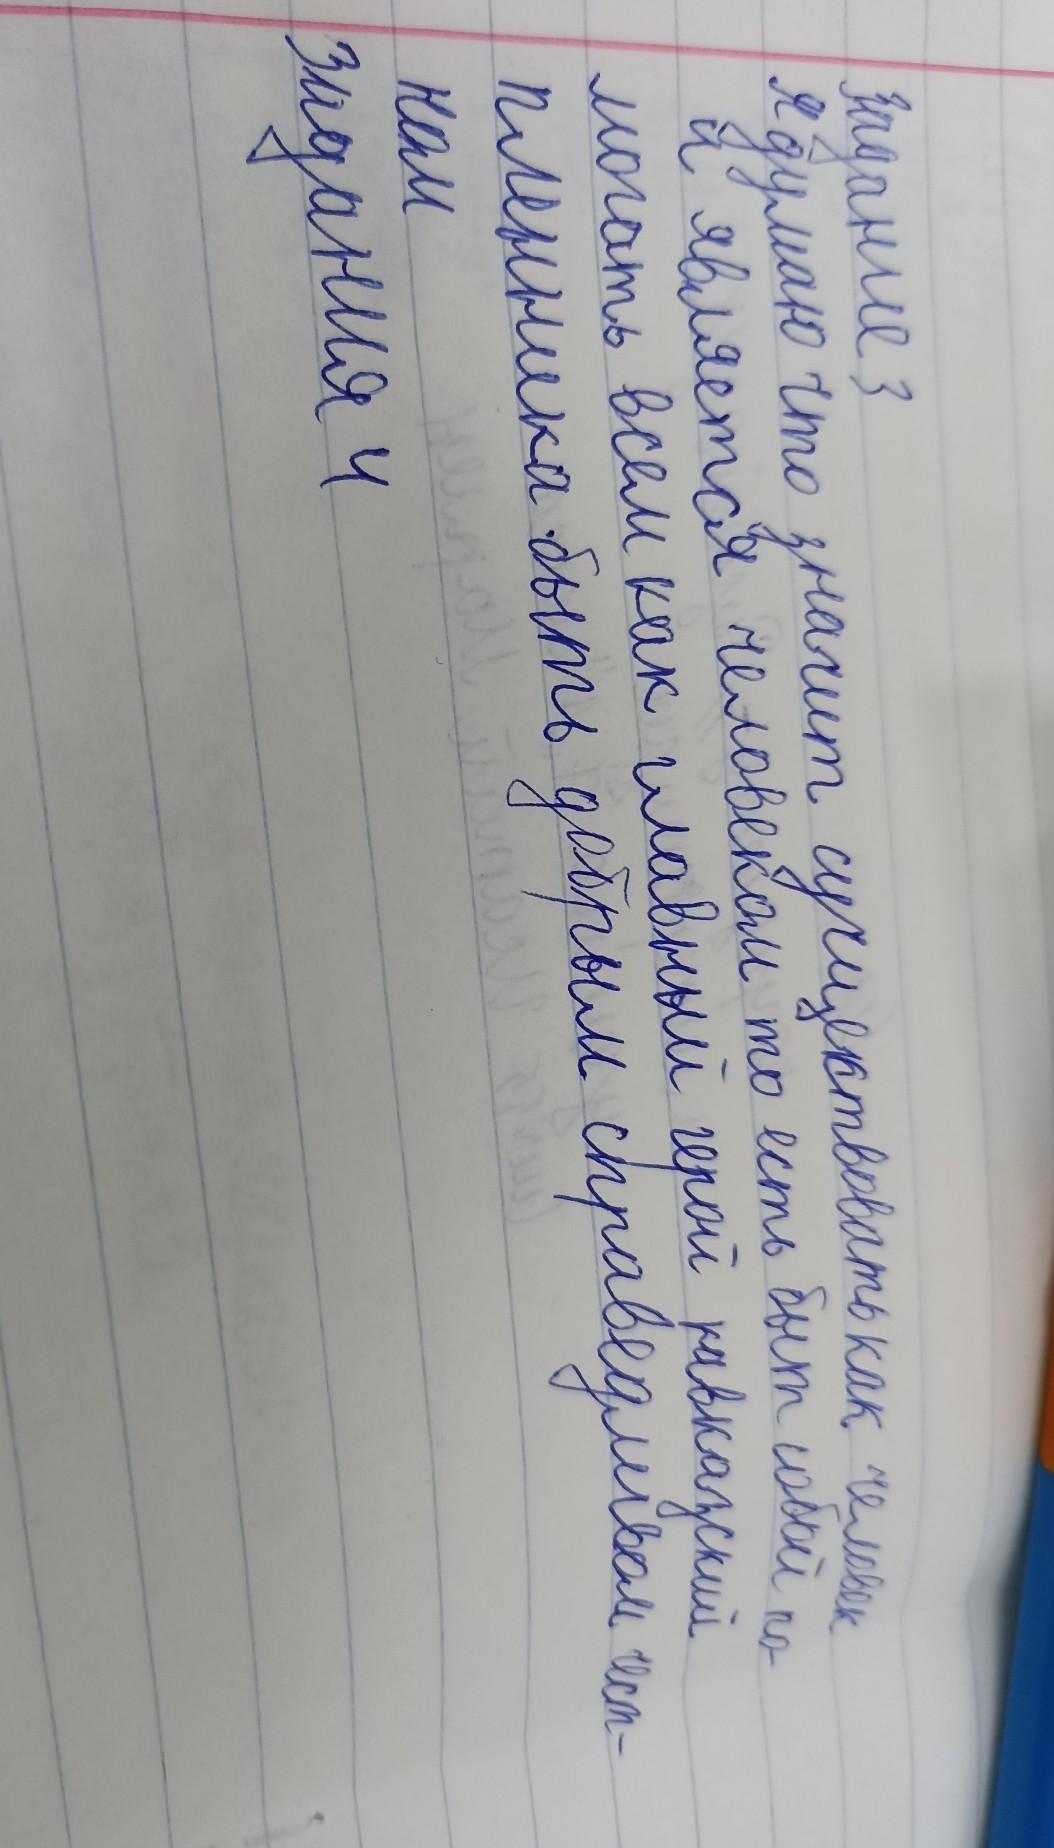 Задание 3
Я думаю что значит сущиктвовать как человек
и является человеком то есть быт собой по-
могать всем как главный герой кавказский
пленника. быть добрым справедливом чест-
ном
Задания 4